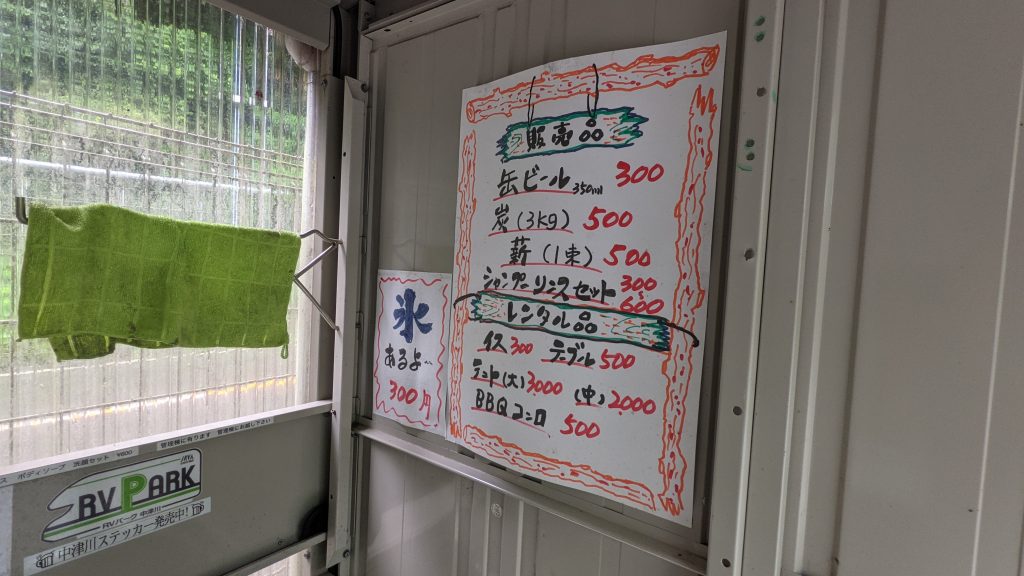 販売品
缶ビール 350ml 300
炭(3kg) 500
薪(1束) 500
シャンプーリンスセット 300
600
レンタル品
イス 300 テーブル 500
テント(大) 3000 (中) 2000
BBQコンロ 500
氷
あるよ〜
300円
ボディソープ 洗顔セット ¥600 管理棟に有ります 管理棟にお越し下さい
RV PARK
RVパーク 中津川
中津川ステッカー発売中!